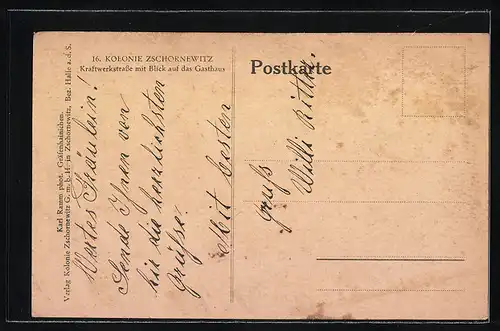 16. KOLONIE ZSCHORNEWITZ
Kraftwerkstraße mit Blick auf das Gasthaus
Postkarte
Karl Ramm phot. Gräfenhainichen.
Verlag Kolonie Zschornewitz G. m. b. H. in Zschornewitz, Bez. Halle a. d. S.
Wertes Fräulein!
Sende Ihnen von
hir die herzlichsten
Grüsse.
Mit besten
Gruß
Willi Ritter.